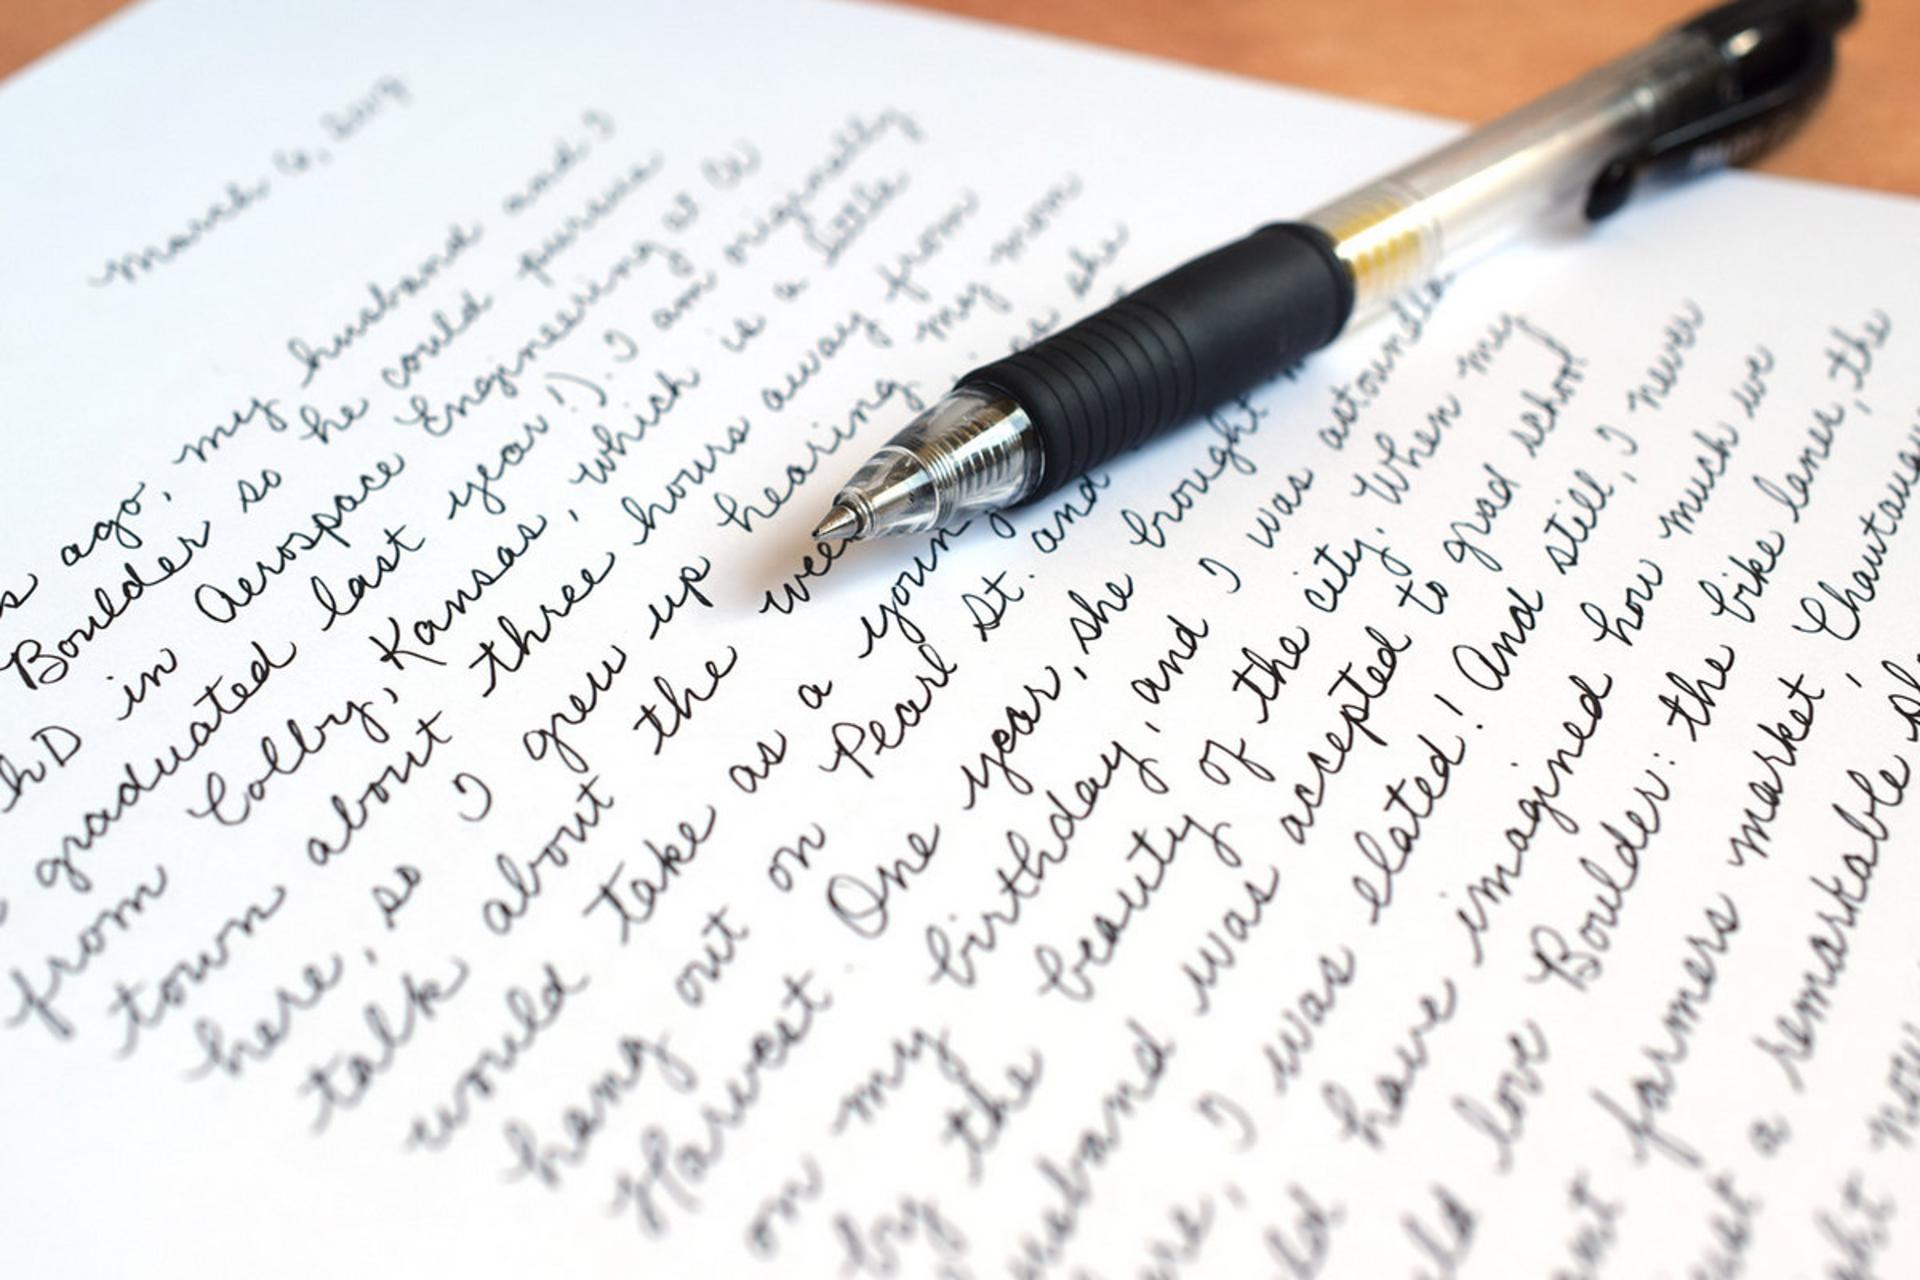 March 6, 2019
ago, my husband and I
Boulder so he could pursue
PhD in Aerospace Engineering at CU
graduated last year!). I am originally
from Colby, Kansas, which is a little
town about three hours away from
here, so I grew up hearing my mom
talk about the she
would take as a young
hang out on Pearl St. and
Harvest. One year, she brought
on my birthday, and I was
by the beauty of the city. When my
husband was accepted to grad school
I was elated! And still, I never
have imagined how much we
love Boulder: the bike lanes, the
farmers market,
a remarkable